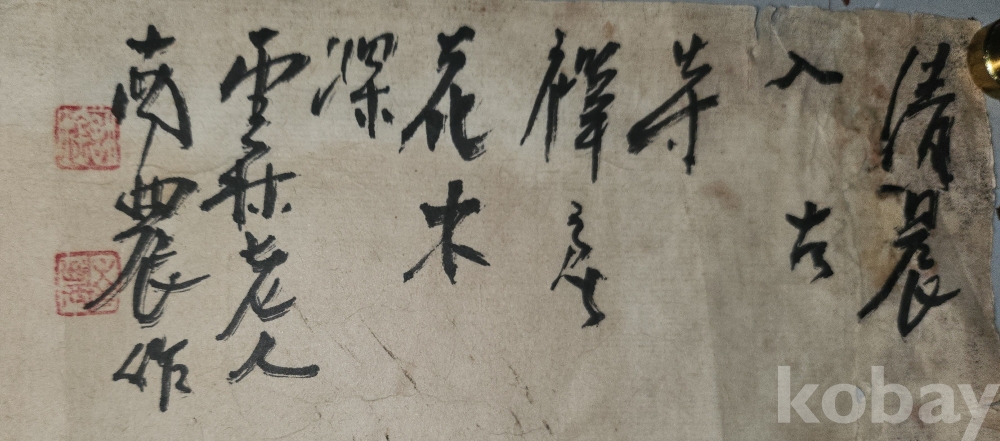 清晨
入古
寺
禪房
花木
深
雲林老人
南農作
kobay